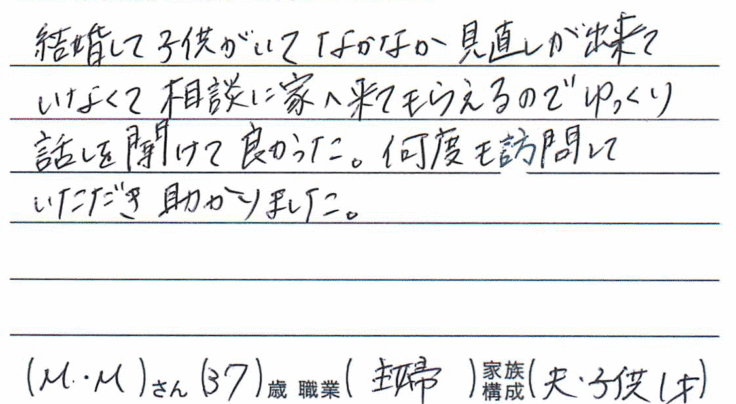 結婚して子供がいてなかなか見直しが出来て
いなくて相談に家へ来てもらえるのでゆっくり
話しを聞けて良かった。何度も訪問して
いただき助かりました。
(M.M)さん(37)歳 職業(主婦)家族構成(夫・子供1才)